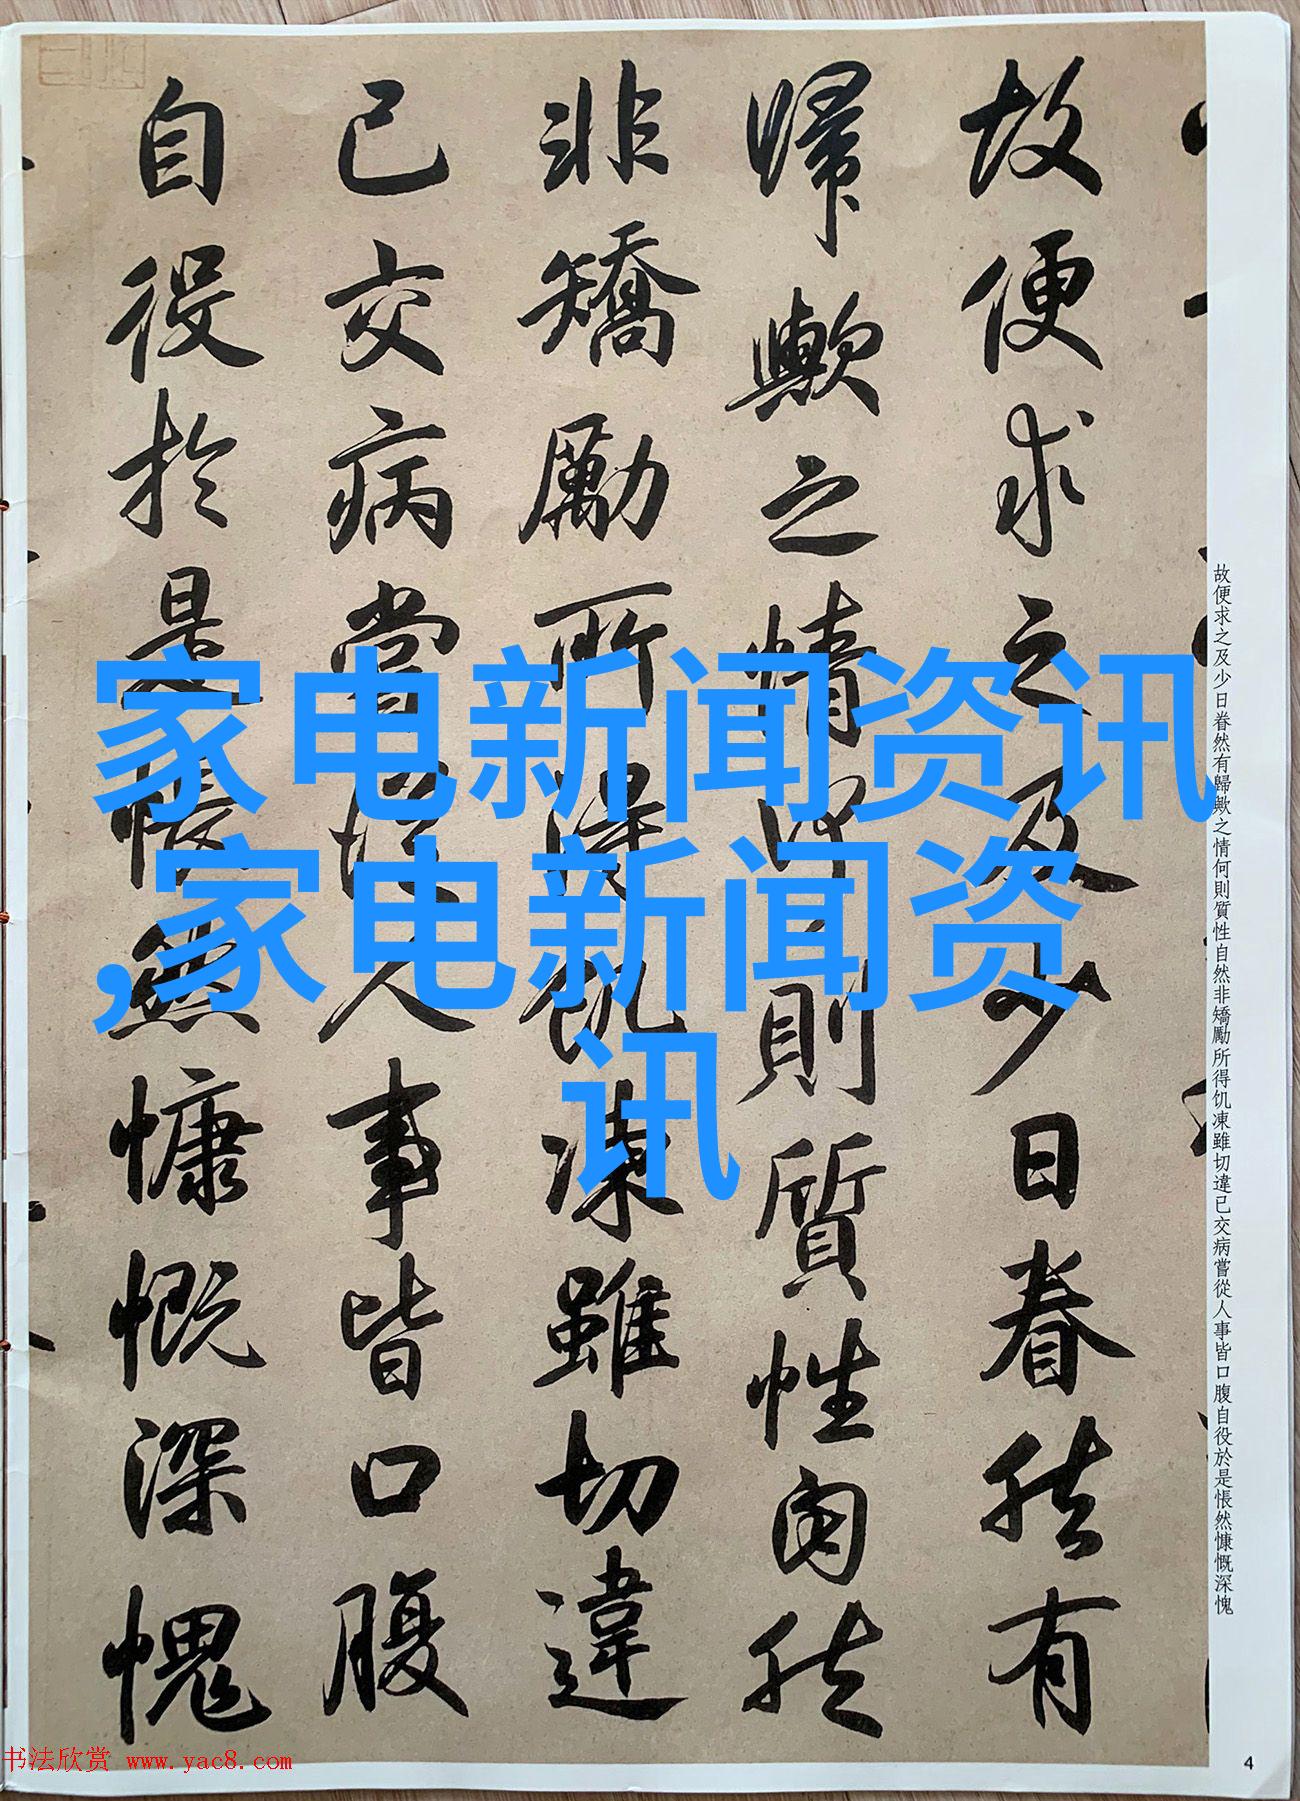 故便求之及少日眷然有
歸歟之情何則質性自然
非矯勵所得飢凍雖切違
已交病嘗從人事皆口腹
自役於是悵然慷慨深愧
家电新闻资讯
,家电新闻资
讯
故便求之及少日眷然有歸歟之情何則質性自然非矯勵所得飢凍雖切違已交病嘗從人事皆口腹自役於是悵然慷慨深愧
书法欣赏 www.yac8.com
4